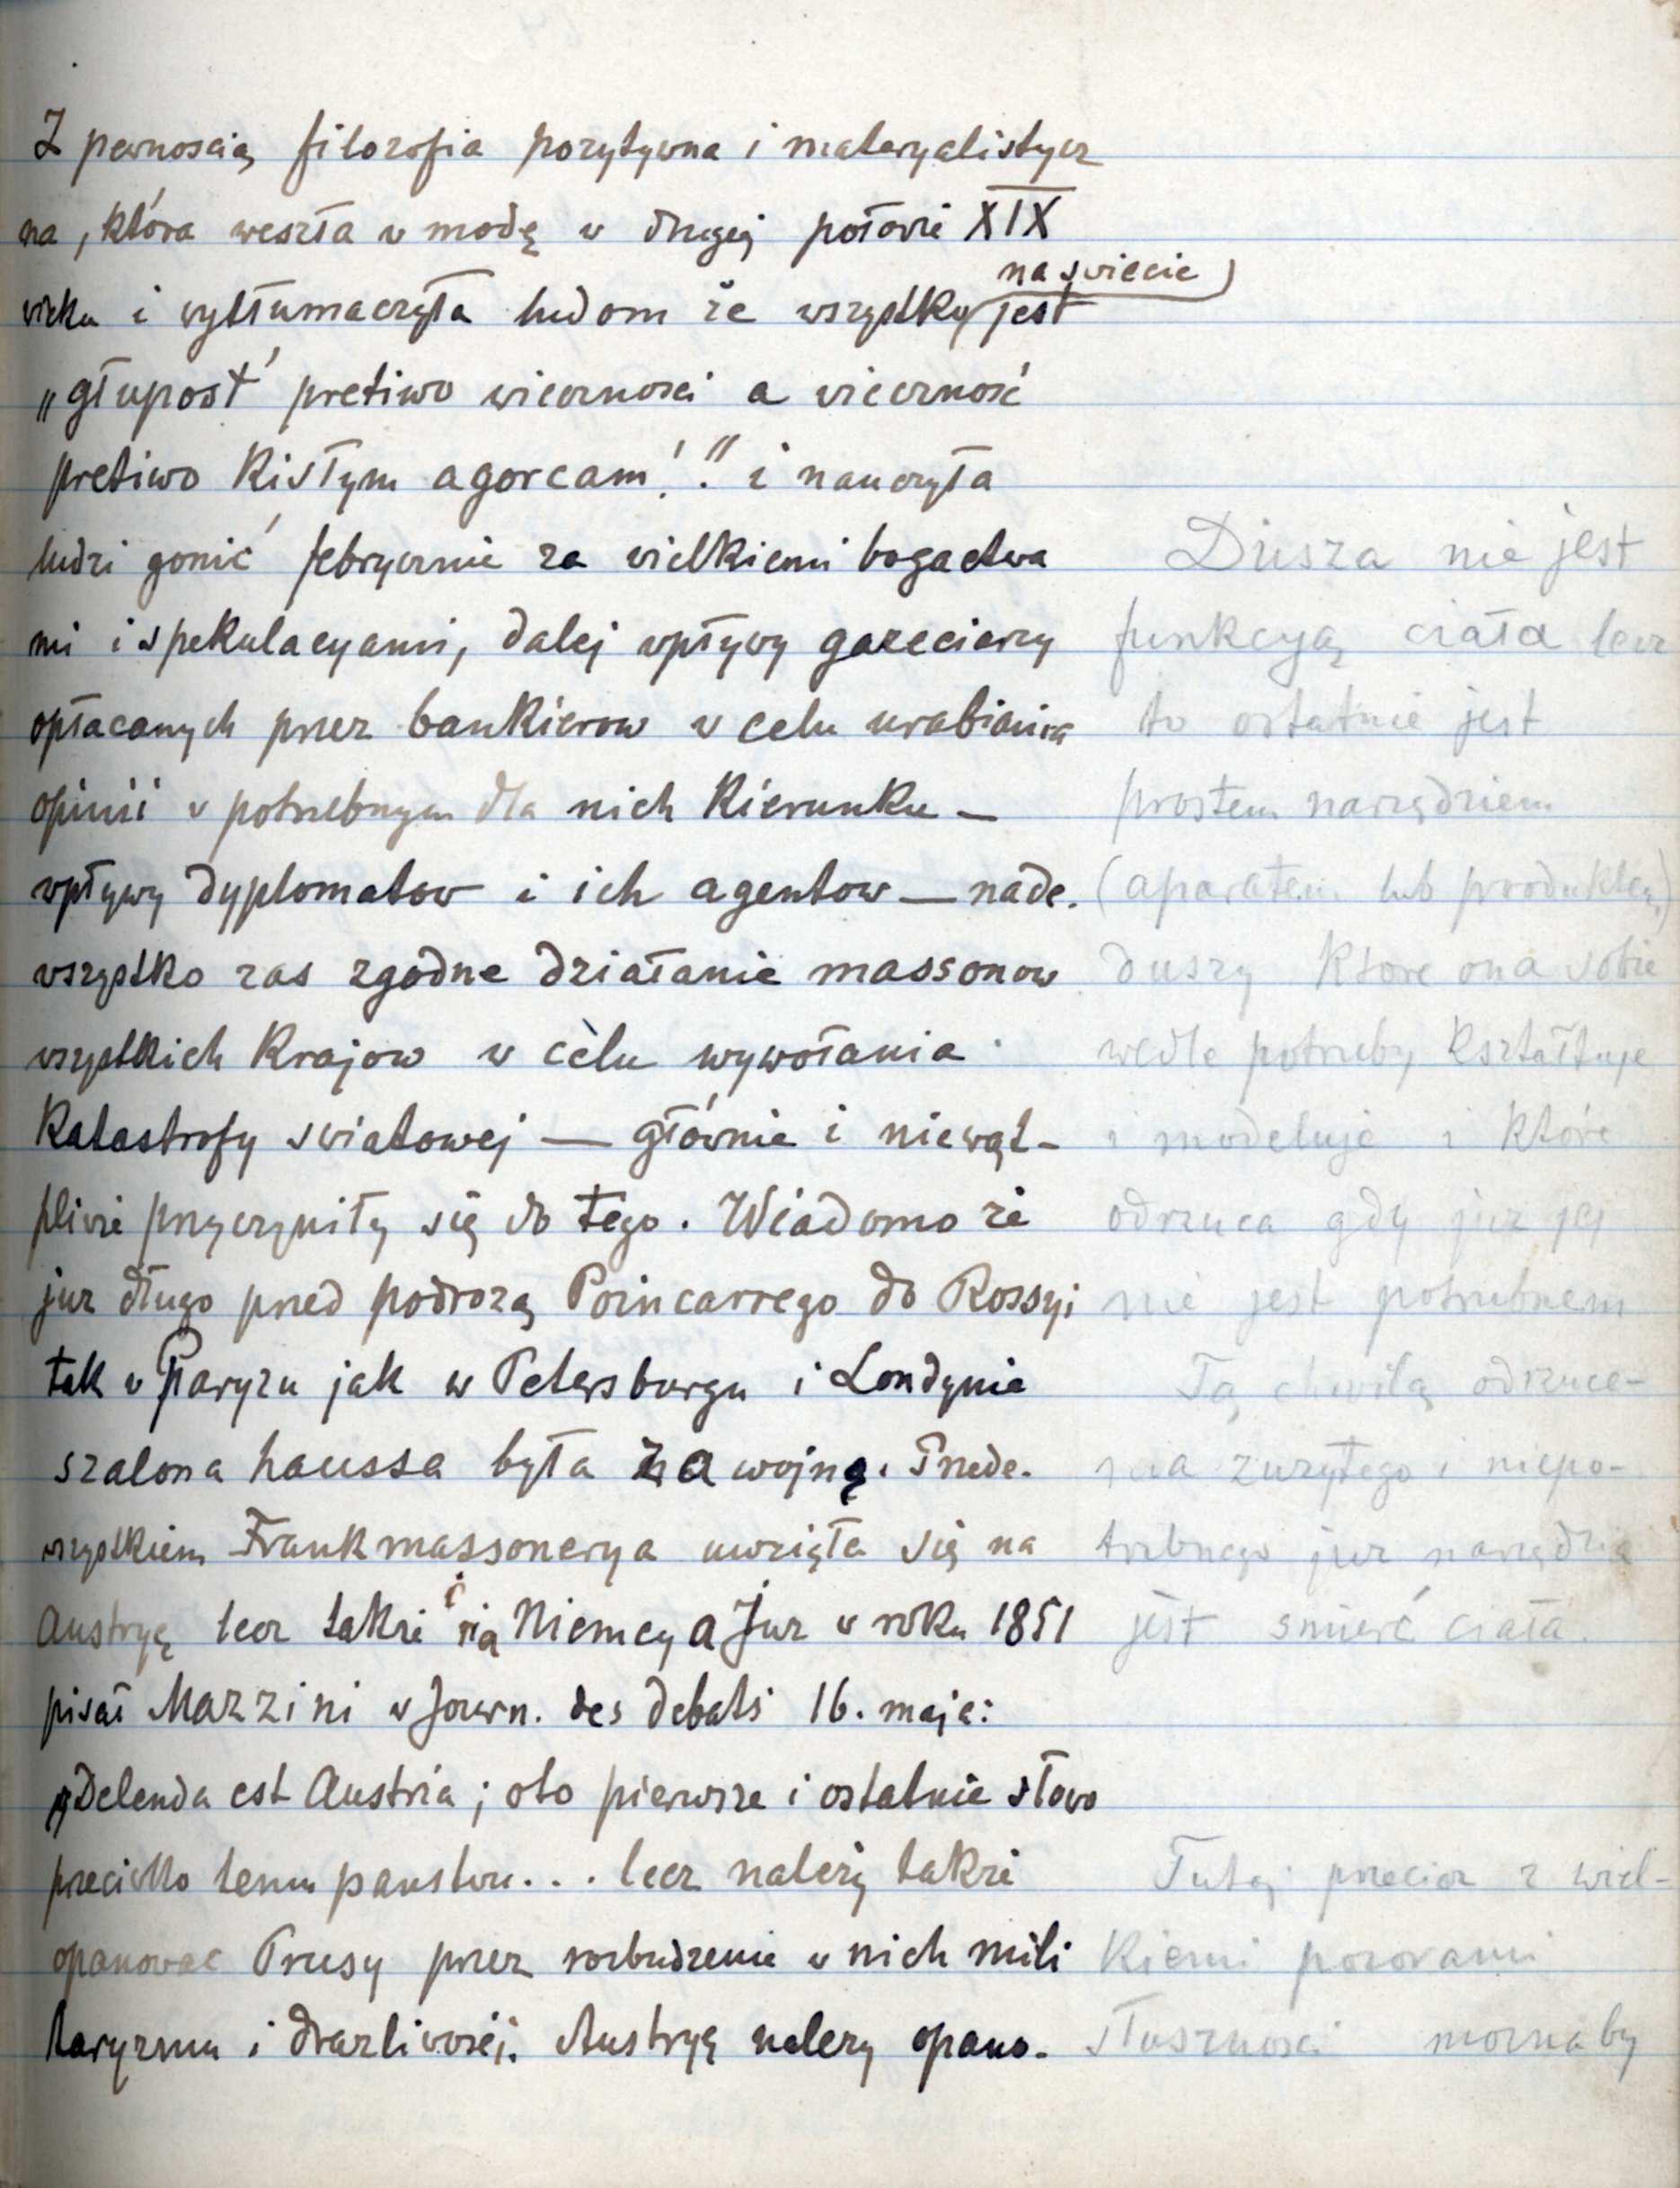 Z pewnoscią filozofia pozytywna i materyalistycz
na, która weszła w modę w drugiej połowie XIX
wieku i wytłumaczyła ludom że wszystko na swiecie jest
„głupost' pretiwo wiecznosci a wieczność
pretiwo Kisłym agorcam!." i nauczyła
ludzi gonić febrycznie za wielkiemi bogactwa
mi i spekulacyami, dalej wpływy gazeciarzy
opłacanych przez bankierow w celu urabiania
opinii w potrzebnym dla nich Kierunku —
wpływy dyplomatow i ich agentow — nade.
wszystko zas zgodne działanie massonow
wszystkich Krajow w celu wywołania
Katastrofy swiatowej — głównie i niewąt-
pliwie przyczyniły się do tego. Wiadomo że
juz długo przed podrozą Poincarrego do Rossyi
tak w Paryzu jak w Petersburgu i Londynie
szalona haussa była za wojną. Przede.
wszystkiem Frankmassonerya uwzięła się na
Austryę lecz takze i na Niemcy a Juz w roku 1851
pisał Mazzini w Journ. des debats 16. maja:
„Delenda est Austria; oto pierwsze i ostatnie słowo
przeciwko temu panstwu... lecz należy takze
opanowac Prusy przez rozbudzenie w nich mili
taryzmu i drazliwości. Austryę nalezy opano-
Dusza nie jest
funkcyą ciała lecz
to ostatnie jest
prostem narzędziem
(aparatem lub produktem)
duszy Ktore ona sobie
wedle potrzeby Kształtuje
i modeluje i Które
odrzuca gdy juz jej
nie jest potrzebnem
Tą chwilą odrzuce-
nia zuzytego i niepo-
trzebnego juz narzędzia
jest smierć ciała.
Tutaj przeciez z wiel-
Kiemi pozorami
słusznosci moznaby